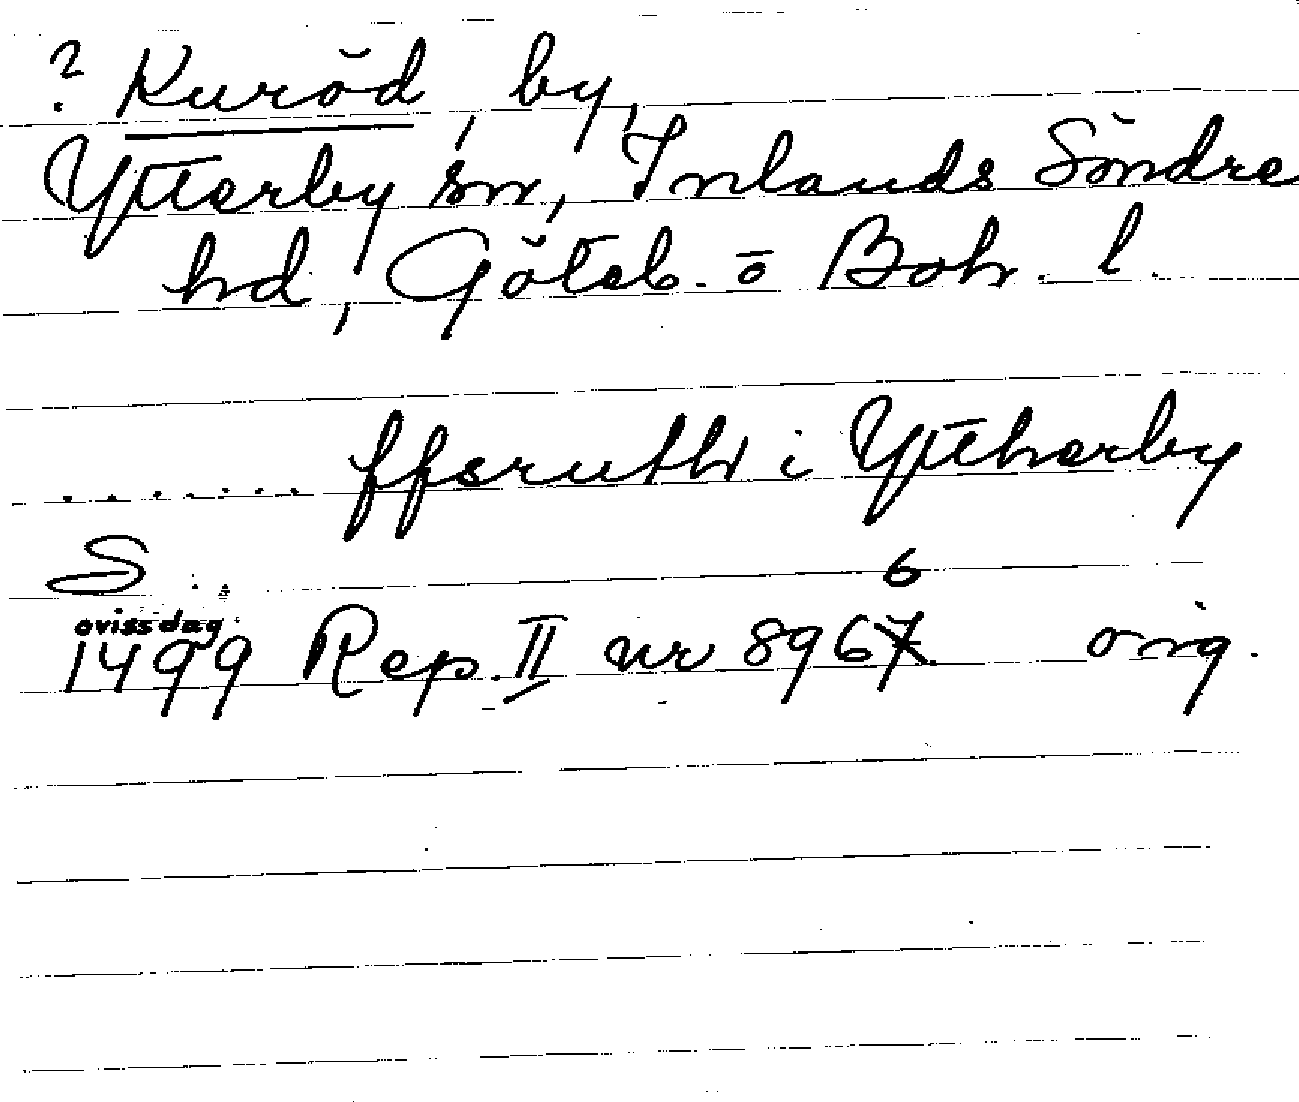 ? Kuröd, by,
Ytterby sn, Inlands Söndre
hd, Göteb. o Boh. l.
....... ffsruth i Yttherby
S..
ovissdag 6
1499 Rep. II nr 8967 orig.